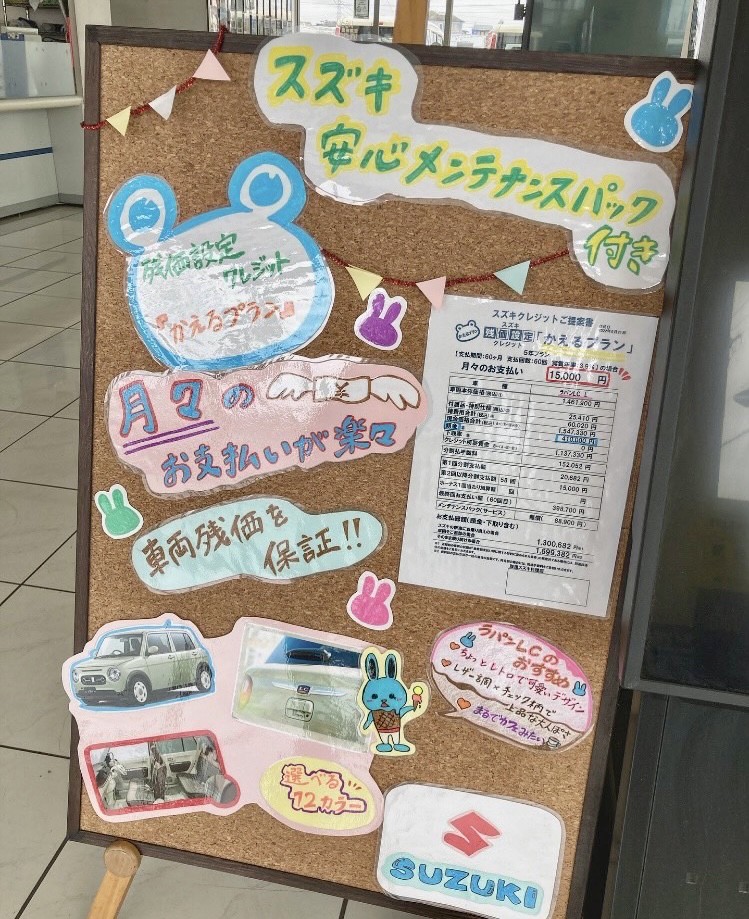 スズキ
安心メンテナンスパック
付き
残価設定
クレジット
『かえるプラン』
月々の
お支払いが楽々
車両残価を
保証!!
スズキクレジットご提案書
かえるプラン
スズキ
残価設定「かえるプラン」
クレジット
5年プラン
月々のお支払い
15,000 円
車種
ラパンLC
車両本体価格
1,461,900 円
25,410 円
60,020 円
1,547,330 円
頭金
410,000 円
下取車
0 円
1,137,330 円
分割払手数料
152,052 円
第1回分割支払額
20,682 円
第2回以降分割支払額 58 回
15,000 円
ボーナス1回当たり加算額 回
円
最終回お支払い額(60回目)
398,700 円
メンテナンスパック(サービス)
68,900 円
お支払総額(頭金・下取り含む)
1,300,682 円
1,699,382 円
ラパンLCの
おすすめ
ちょっとレトロで可愛いデザイン
レザー調×チェック柄で
上品な大人ぽさ
まるでカフェみたい
LC
選べる
12カラー
SUZUKI